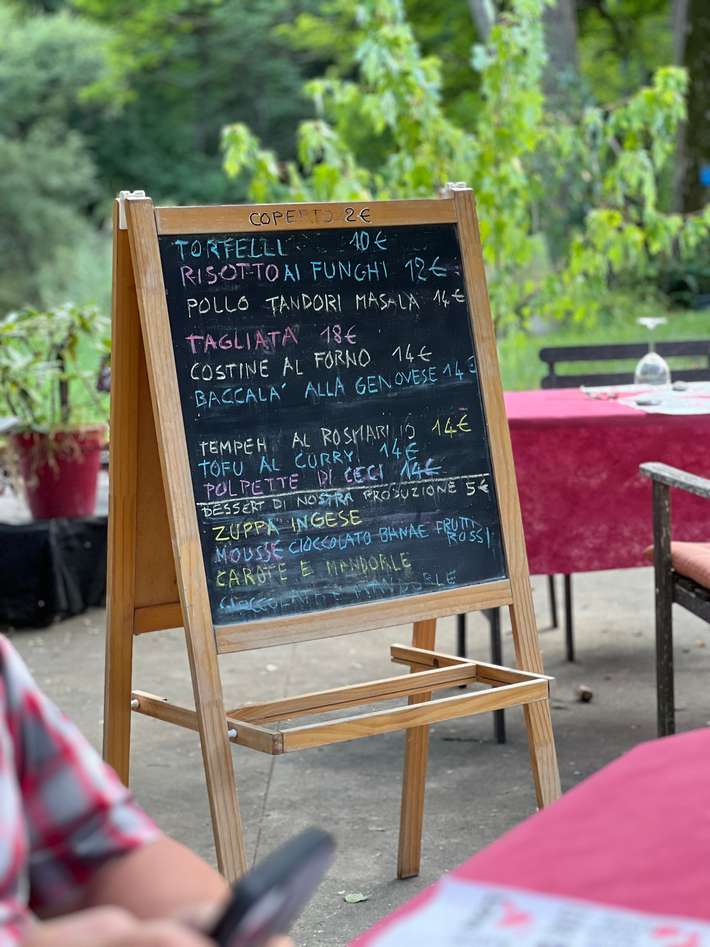 COPERTO 2€
TORTELLI 10€
RISOTTO AI FUNGHI 12€
POLLO TANDORI MASALA 14€
TAGLIATA 18€
COSTINE AL FORNO 14€
BACCALA' ALLA GENOVESE 14€
TEMPEH AL ROSMARINO 14€
TOFU AL CURRY 14€
POLPETTE DI CECI 14€
DESSERT DI NOSTRA PRODUZIONE 5€
ZUPPA INGESE
MOUSSE CIOCCOLATO BANAE FRUTTI
ROSSI
CAROTE E MANDORLE
CIOCCOLATO E MANDORLE